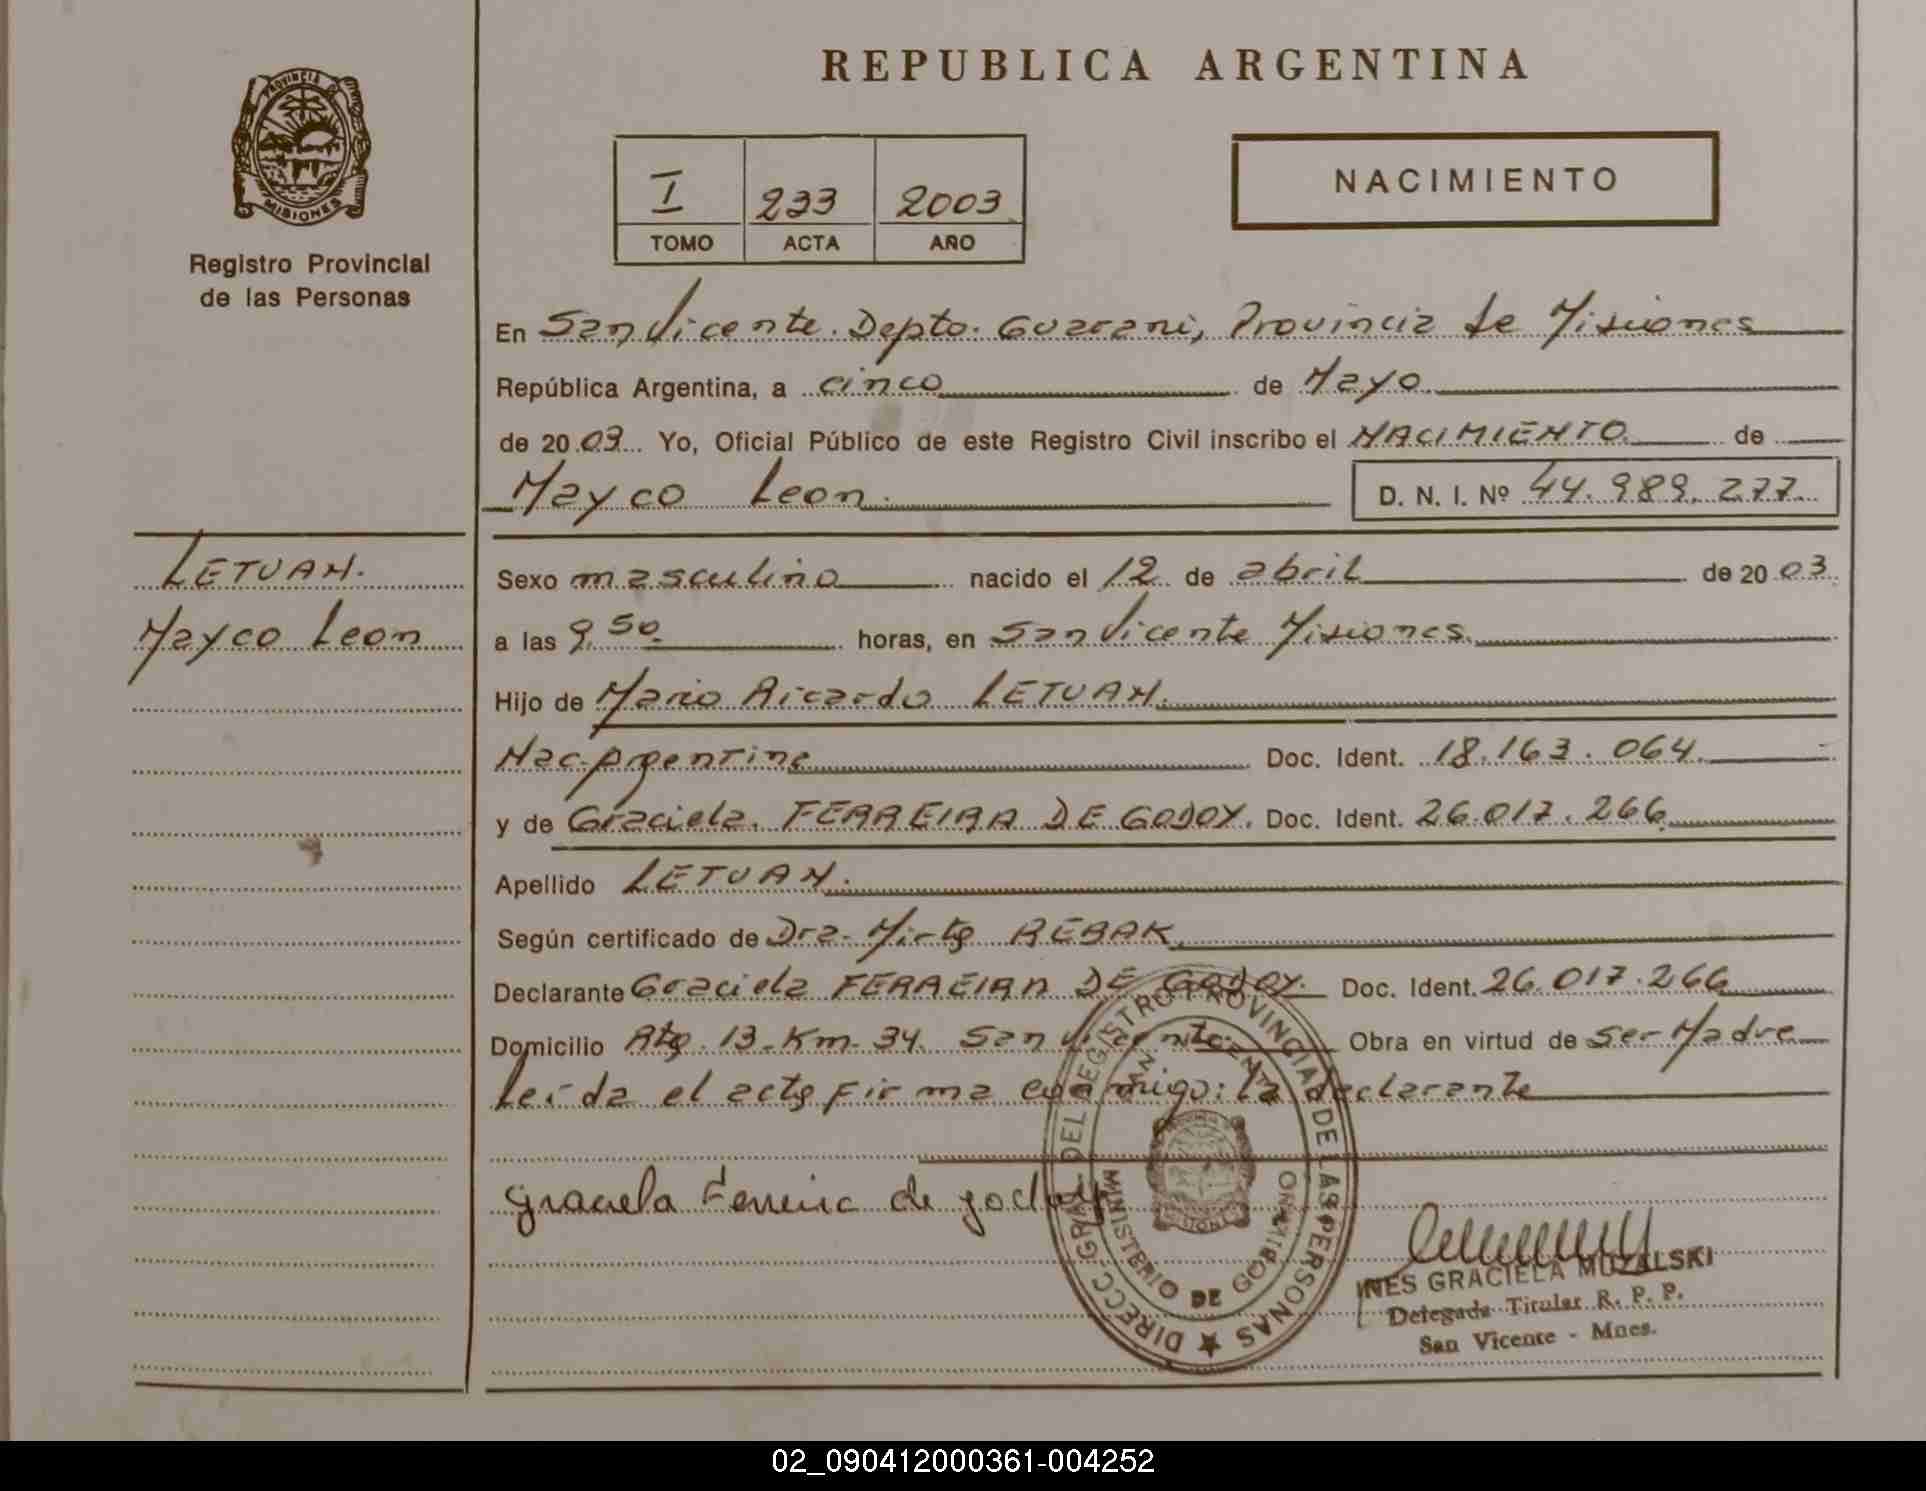 PROVINCIA DE
MISIONES
Registro Provincial
de las Personas
REPUBLICA ARGENTINA
I 233 2003
TOMO ACTA AÑO
NACIMIENTO
En San Vicente. Depto. Guarani, Provincia de Misiones
República Argentina, a cinco de Mayo
de 2003 Yo, Oficial Público de este Registro Civil inscribo el NACIMIENTO de
Mayco Leon. D. N. I. Nº 44.989.277.
LETUAN.
Mayco Leon
Sexo masculino nacido el 12 de abril de 2003
a las 9,50 horas, en San Vicente Misiones.
Hijo de Mario Ricardo LETUAN.
Nac. Argentina Doc. Ident. 18.163.064.
y de Graciela. FERREIRA DE GODOY. Doc. Ident. 26.017.266
Apellido LETUAN.
Según certificado de Dra. Mirta REBAK.
Declarante Graciela FERREIRA DE GODOY. Doc. Ident. 26.017.266
Domicilio Rta. 13-Km-34. San Vicente. Obra en virtud de ser Madre
Leída el acta firma conmigo: la declarante
Graciela Ferreira de godoy
DIRECC. GRAL. DEL REGISTRO PROVINCIAL DE LAS PERSONAS ★
SAN VICENTE
MINISTERIO DE GOBIERNO
MISIONES
INES GRACIELA MUZALSKI
Delegada Titular R. P. P.
San Vicente - Mnes.
02_090412000361-004252